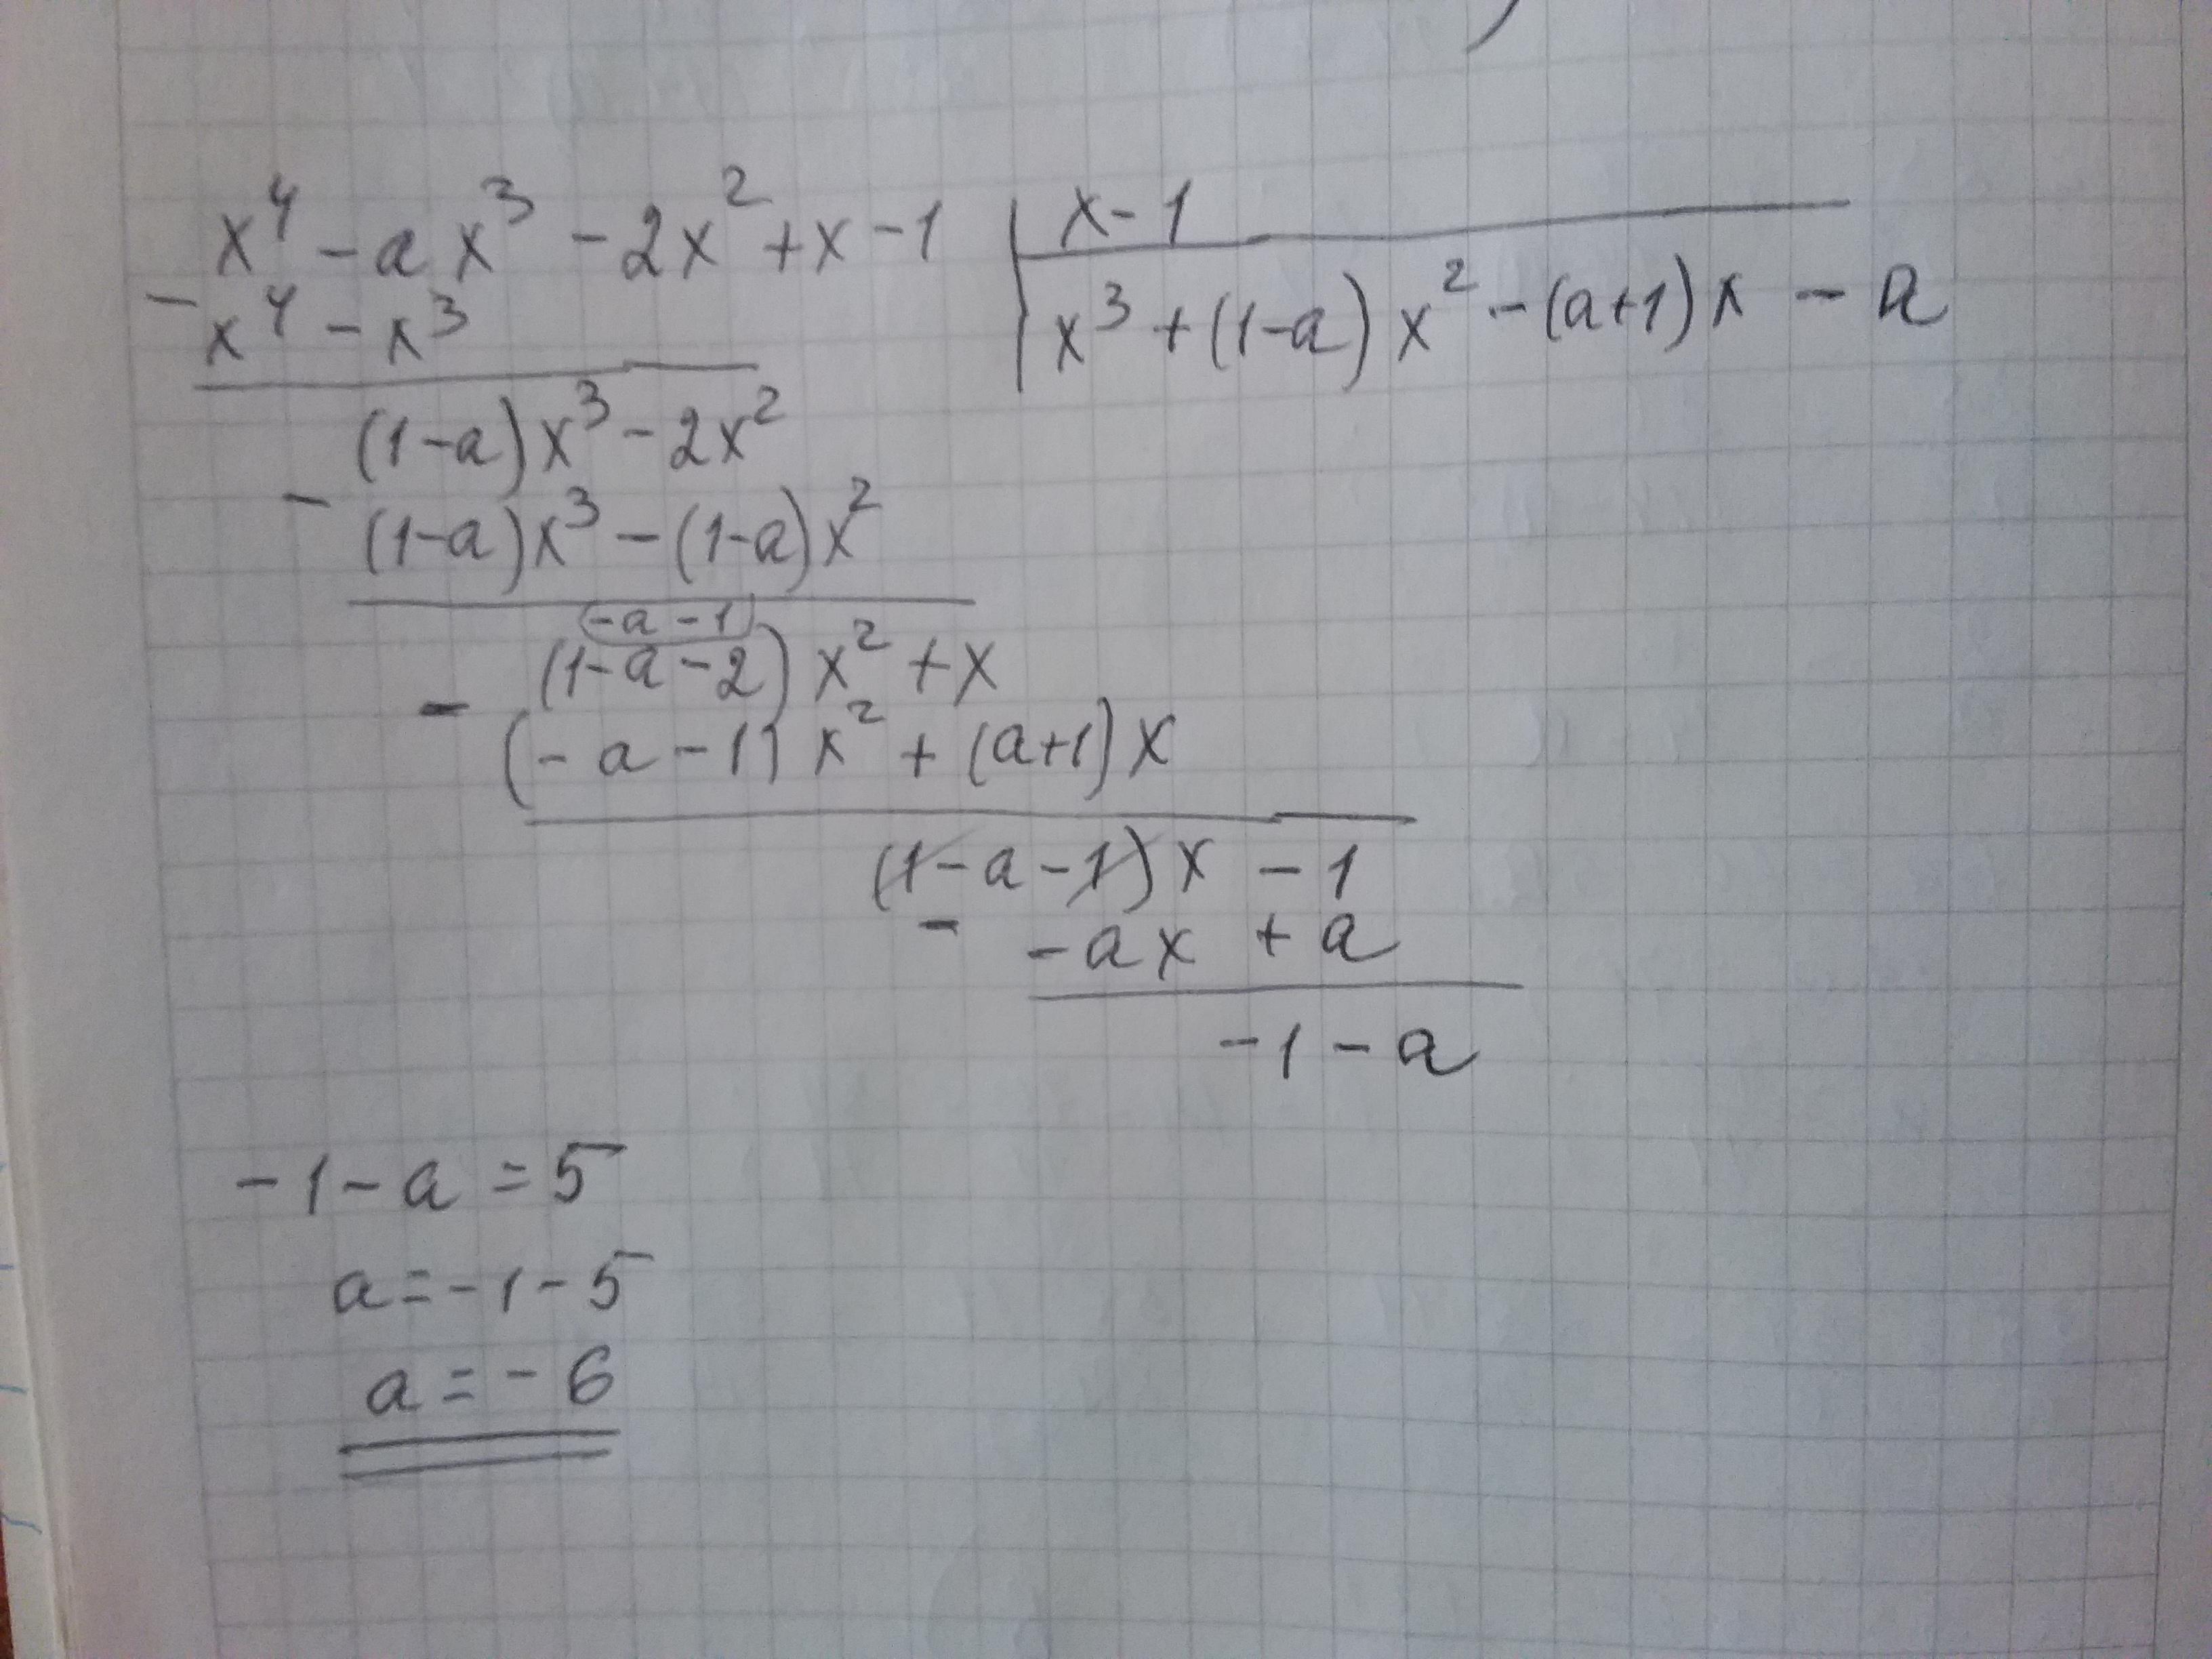 x⁴ - ax³ - 2x² + x - 1 | x - 1
- x⁴ - x³ | x³ + (1-a)x² - (a+1)x - a
(1-a)x³ - 2x²
- (1-a)x³ - (1-a)x²
(-a - 1)
(1-a-2)x² + x
- (-a-1)x² + (a+1)x
(1-a-1)x - 1
- -ax + a
-1-a
-1-a = 5
a = -1-5
a = -6